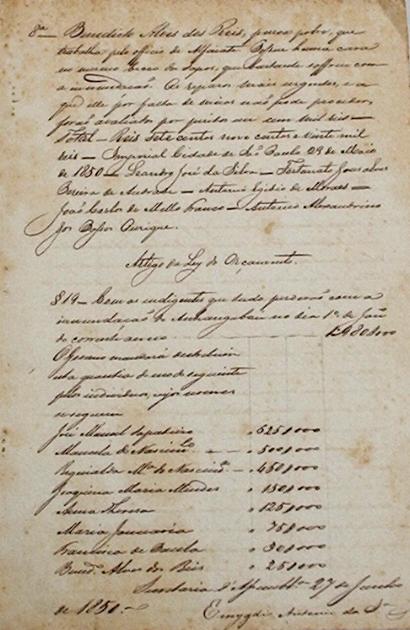 8ª — Benedicto Alves dos Reis, pessoa pobre, que
trabalha pelo officio de Alfaiate. Possue huma casa
no mesmo becco do Lopes, que bastante soffreu com
a inundação. Os reparos mais urgentes, e a
que elle por falta de meios não póde proceder,
forão avaliados por peritos em cem mil reis —
Total — Reis sete centos nove contos e vinte mil
reis — Imperial Cidade de São Paulo 29 de Maio
de 1850 — Leandro José da Silva — Fortunato José
Pereira de Andrade — Antonio Egidio de Moraes —
João Carlos de Mello Franco — Antonio Alexandrino
dos Passos Ourique.
Artigo da Ley do Orcamento.
§ 19 — Com os indigentes que tudo perderão com a
innundação do Anhangabahú no dia 1º de Janº
do corrente anno 1:980#000
O Governo mandará destribuir
esta quantia do modo seguinte
pelos individuos, cujos nomes
se seguem
José Manoel sapateiro 625#000
Manoela do Nascimto 500#000
Ma do Nascimo 450#000
Joaquina Maria Mendes 150#000
Anna Thereza 125#000
Maria Januaria 75#000
Francisca de Paula 30#000
Bendº Alves dos Reis 25#000
Secretaria d'Assemblª 27 de Junho
de 1850 — Emygdio Antonio da Sª